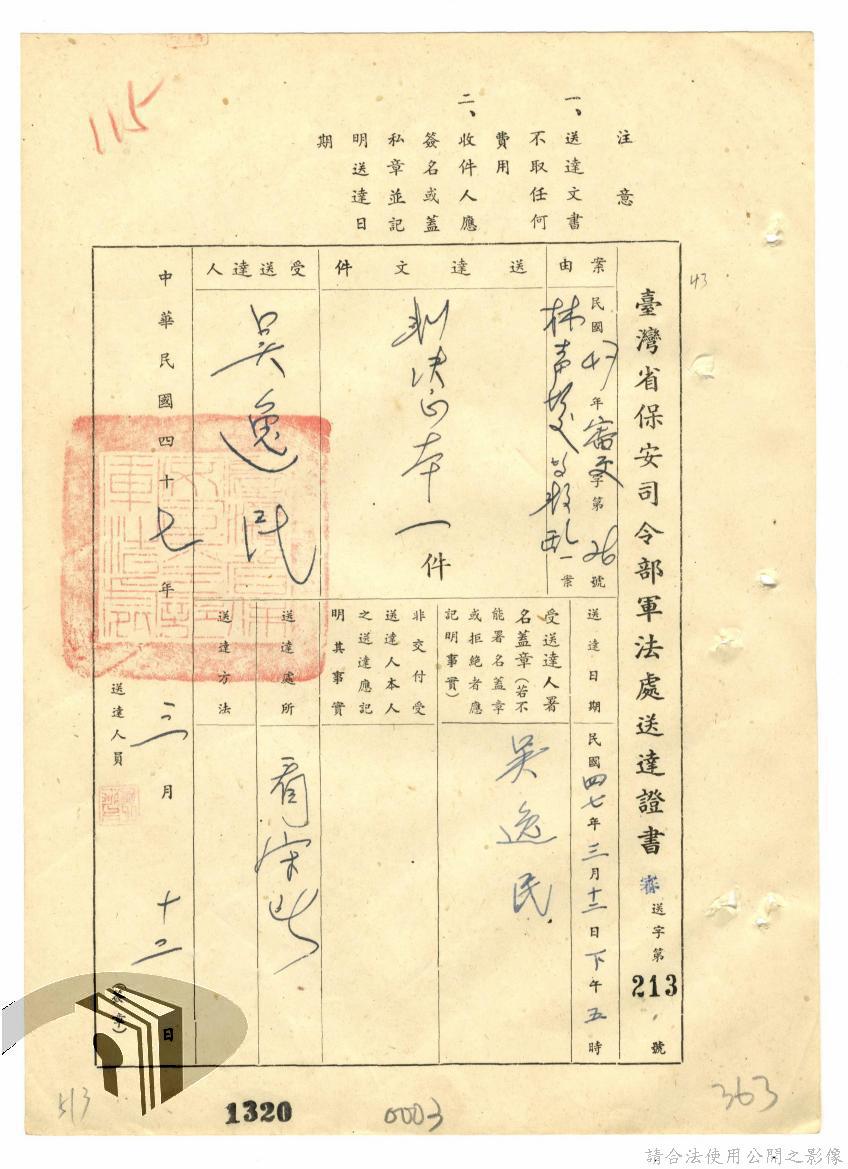 115
注意
一、送達文書
不取任何
費用
二、收件人應
簽名或蓋
私章並記
明送達日
期
43
臺灣省保安司令部軍法處送達證書
審送字第213號
案由
民國47年審交字第26號
林声發等叛亂一案
送達文件
判決正本一件
受送達人
吳逸民
送達日期
民國四七年三月十二日下午五時
受送達人署
名蓋章(若不
能署名蓋章
或拒絕者應
記明事實)
吳逸民
非交付受
送達人本人
之送達應記
明其事實
送達處所
看守所
送達方法
中華民國四十七年三月十二日
送達人員
(簽章)
513
1320
0003
363
請合法使用公開之影像